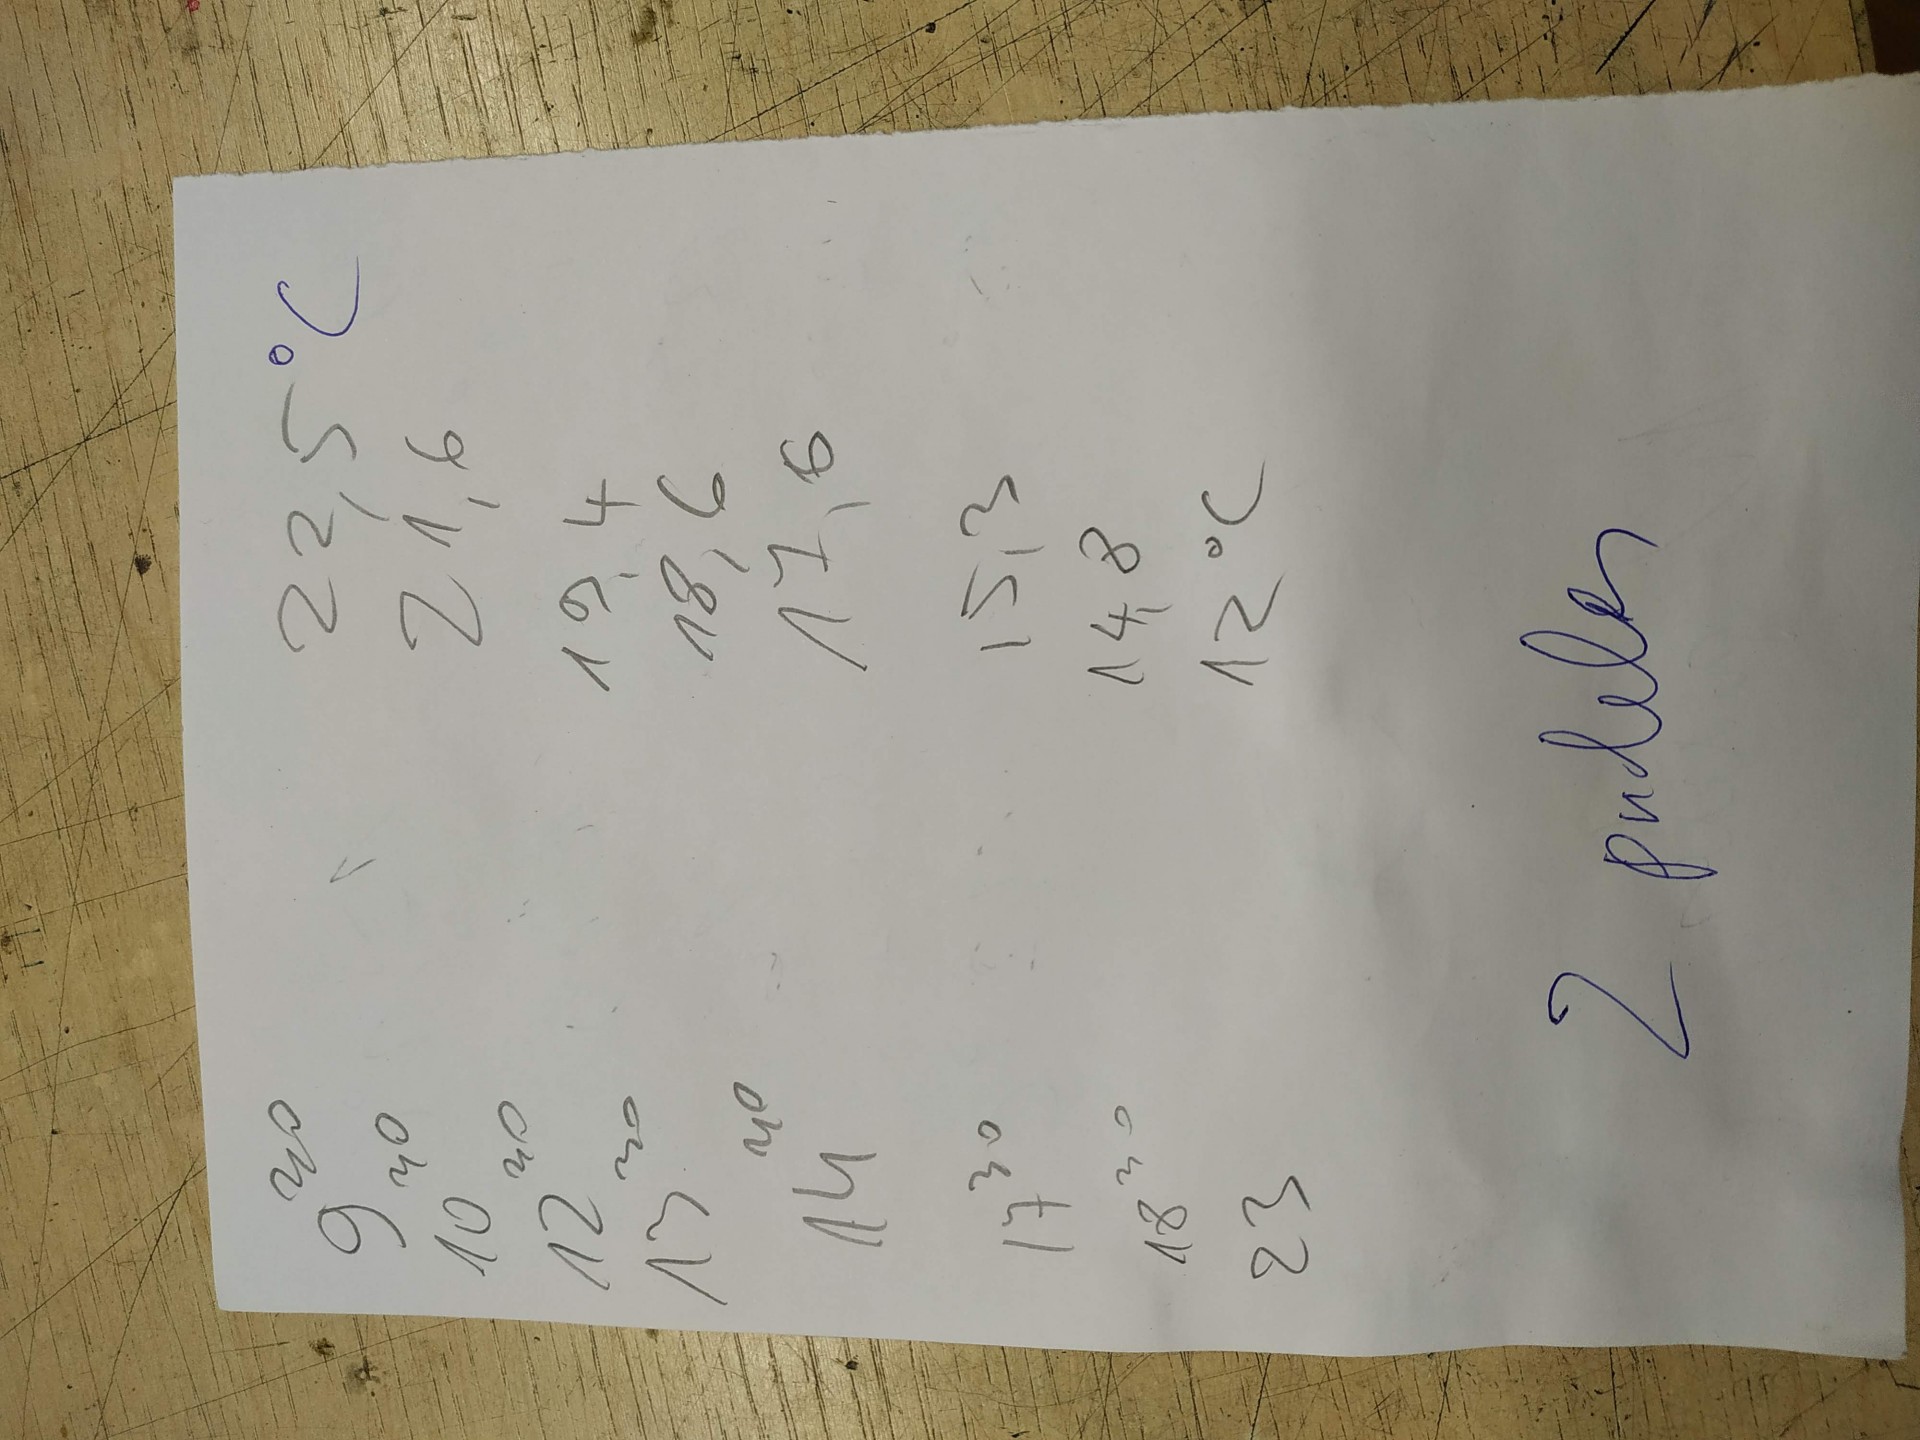 9³⁰ 22,5 °C
10³⁰ 21,6
12³⁰ 19,4
13³⁰ 18,6
14³⁰ 17,6
17³⁰ 15,3
18³⁰ 14,8
23 12 °C
2